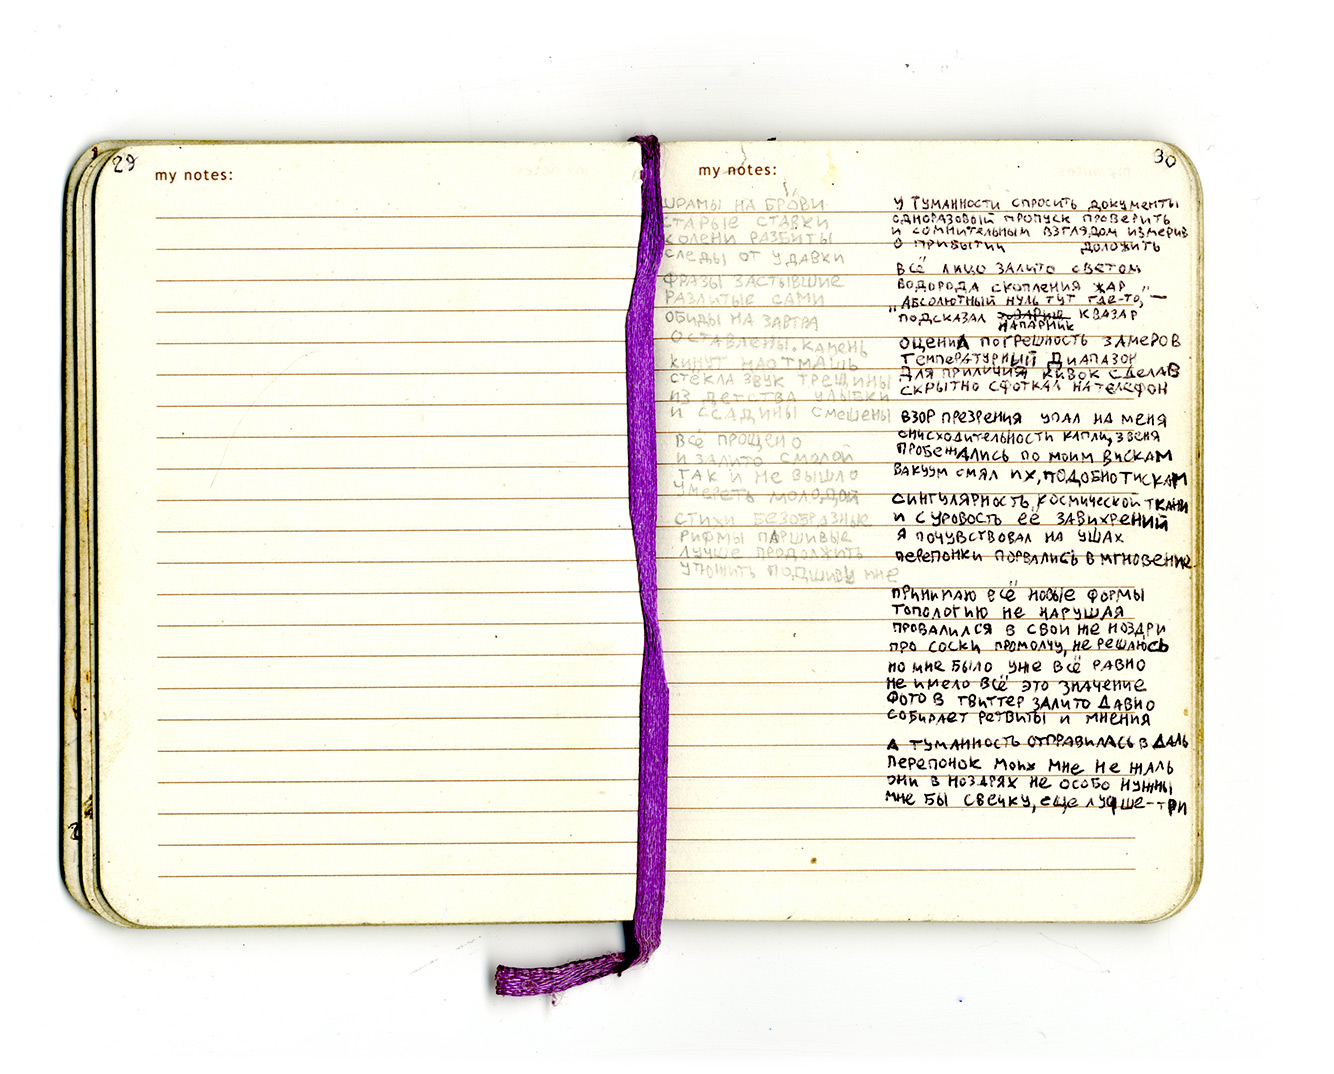 29
my notes:
30
my notes:
ШРАМЫ НА БРОВИ
СТАРЫЕ СТАВКИ
КОЛЕНИ РАЗБИТЫ
СЛЕДЫ ОТ УДАВКИ
ФРАЗЫ ЗАСТЫВШИЕ
РАЗЛИТЫЕ САМИ
ОБИДЫ НА ЗАВТРА
ОСТАВЛЕНЫ. КАМЕНЬ
КИНУТ НАОТМАШЬ
СТЕКЛА ЗВУК ТРЕЩИНЫ
ИЗ ДЕТСТВА УЛЫБКИ
И ССАДИНЫ СМЕШЕНЫ
ВСЁ ПРОЩЕНО
И ЗАЛИТО СМОЛОЙ
ТАК И НЕ ВЫШЛО
УМЕРЕТЬ МОЛОДОЙ
СТИХИ БЕЗОБРАЗНЫЕ
РИФМЫ ПАРШИВЫЕ
ЛУЧШЕ ПРОДОЛЖИТЬ
УПОНИТЬ МНЕ
У ТУМАННОСТИ СПРОСИТЬ ДОКУМЕНТЫ
ОДНОРАЗОВЫЙ ПРОПУСК ПРОВЕРИТЬ
И СОМНИТЕЛЬНЫМ ВЗГЛЯДОМ ИЗМЕРИВ
О ПРИБЫТИИ ДОЛОЖИТЬ
ВСЁ ЛИЦО ЗАЛИТО СВЕТОМ
ВОДОРОДА СКОПЛЕНИЯ ЖАР
„АБСОЛЮТНЫЙ НУЛЬ ТУТ ГДЕ-ТО," —
ПОДСКАЗАЛ КВАЗАР
НАПАРНИК
ОЦЕНИЛ ПОГРЕШНОСТЬ ЗАМЕРОВ
ТЕМПЕРАТУРНЫЙ ДИАПАЗОН
ДЛЯ ПРИЛИЧИЯ КИВОК СДЕЛАВ
СКРЫТНО СФОТКАЛ НА ТЕЛЕФОН
ВЗОР ПРЕЗРЕНИЯ УПАЛ НА МЕНЯ
СНИСХОДИТЕЛЬНОСТИ КАПЛИ, ЗВЕНЯ
ПРОБЕЖАЛИСЬ ПО МОИМ ВИСКАМ
ВАКУУМ СМЯЛ ИХ, ПОДОБНО ТИСКАМ
СИНГУЛЯРНОСТЬ КОСМИЧЕСКОЙ ТКАНИ
И СУРОВОСТЬ ЕЁ ЗАВИХРЕНИЙ
Я ПОЧУВСТВОВАЛ НА УШАХ
ПЕРЕПОНКИ ПОРВАЛИСЬ В МГНОВЕНИЕ
ПРИНИМАЮ ВСЁ НОВЫЕ ФОРМЫ
ТОПОЛОГИЮ НЕ НАРУШАЯ
ПРОВАЛИЛСЯ В СВОИ ЖЕ НОЗДРИ
ПРО СОСКИ ПРОМОЛЧУ, НЕ РЕШАЮСЬ
НО МНЕ БЫЛО УЖЕ ВСЁ РАВНО
НЕ ИМЕЛО ВСЁ ЭТО ЗНАЧЕНИЕ
ФОТО В ТВИТТЕР ЗАЛИТО ДАВНО
СОБИРАЕТ РЕТВИТЫ И МНЕНИЯ
А ТУМАННОСТЬ ОТПРАВИЛАСЬ В ДАЛЬ
ПЕРЕПОНОК МОИХ МНЕ НЕ ЖАЛЬ
ОНИ В НОЗДРЯХ НЕ ОСОБО НУЖНЫ
МНЕ БЫ СВЕЧКУ, ЕЩЕ ЛУЧШЕ-ТРИ